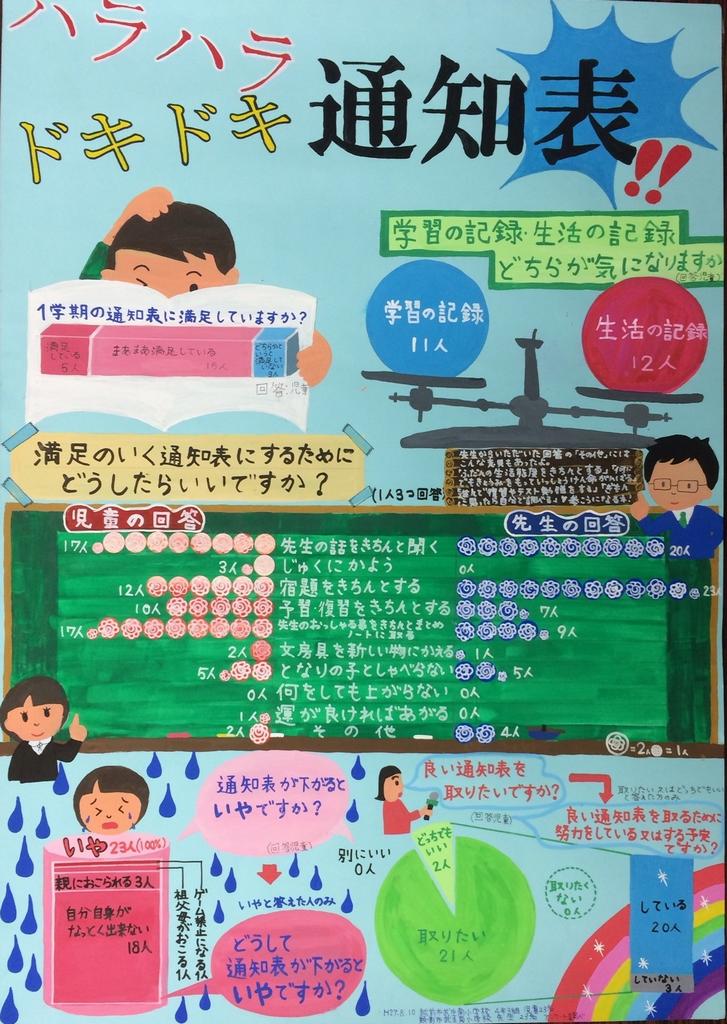 ハラハラ
ドキドキ
通知表!!
学習の記録・生活の記録
どちらが気になりますか
(回答児童)
学習の記録
11人
生活の記録
12人
1学期の通知表に満足していますか?
満足
している
5人
まあまあ満足している
15人
どちらかと
いうと
満足して
いない
3人
回答:児童
満足のいく通知表にするために
どうしたらいいですか?
(1人3つ回答)
先生からいただいた回答の「その他」には
こんな意見もあったよ。
児童の回答
先生の回答
17人 先生の話をきちんと聞く 20人
3人 じゅくにかよう 0人
12人 宿題をきちんとする 23人
10人 予習・復習をきちんとする 7人
17人 先生のおっしゃる事をきちんとまとめ
ノートに取る 9人
2人 文房具を新しい物にかえる 1人
5人 となりの子としゃべらない 5人
0人 何をしても上がらない 0人
1人 運が良ければあがる 0人
2人 その他 4人
=2人 =1人
通知表が下がると
いやですか?
(回答児童)
いや23人(100%)
別にいい
0人
親におこられる3人
自分自身が
なっとく出来ない
18人
ゲーム禁止になる1人
祖父母がおこる1人
いやと答えた人のみ
どうして
通知表が下がると
いやですか?
良い通知表を
取りたいですか?
(回答児童)
どっちでも
いい
2人
取りたい
21人
取りたく
ない
0人
取りたい又はどっちでもいい
と答えた方のみ
良い通知表を取るために
努力をしている又はする予定
ですか?
している
20人
していない
3人
H27.8.10